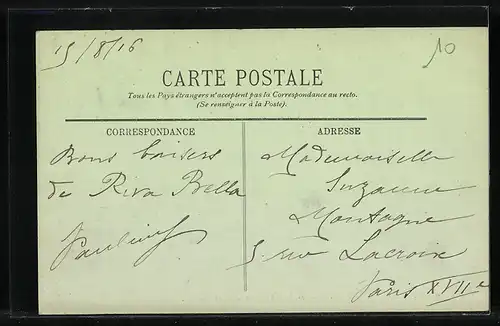 15/8/16
10
CARTE POSTALE
Tous les Pays étrangers n'acceptent pas la Correspondance au recto.
(Se renseigner à la Poste).
CORRESPONDANCE
Bons baisers
de Riva Bella
Pauline
ADRESSE
Mademoiselle
Suzanne
Montagne
5 rue Lacroix
Paris XVIIe